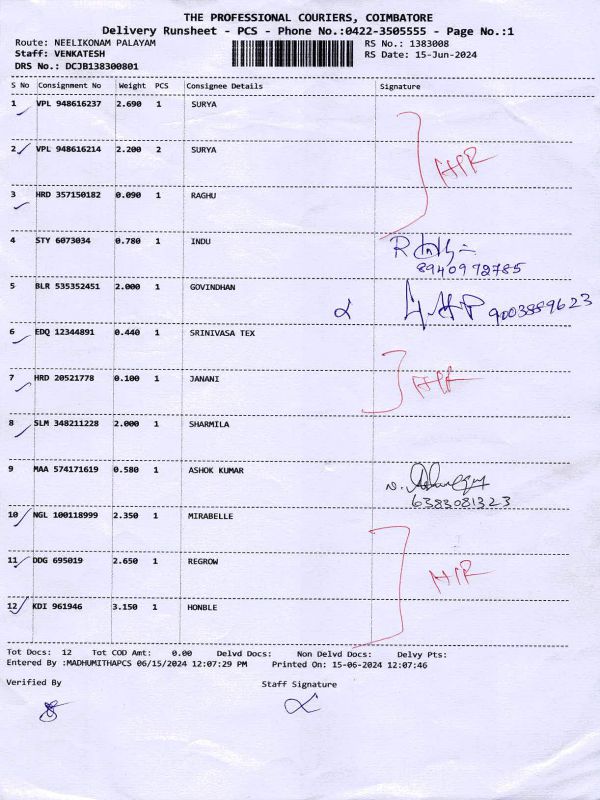 THE PROFESSIONAL COURIERS, COIMBATORE
Delivery Runsheet - PCS - Phone No.:0422-3505555 - Page No.:1
Route: NEELIKONAM PALAYAM RS No.: 1383008
Staff: VENKATESH RS Date: 15-Jun-2024
DRS No.: DCJB138300801
S No Consignment No Weight PCS Consignee Details Signature
1 VPL 948616237 2.690 1 SURYA
2 VPL 948616214 2.200 2 SURYA
3 HRD 357150182 0.090 1 RAGHU
4 STY 6073034 0.780 1 INDU
8940972785
5 BLR 535352451 2.000 1 GOVINDHAN
9003889623
6 EDQ 12344891 0.440 1 SRINIVASA TEX
7 HRD 20521778 0.100 1 JANANI
8 SLM 348211228 2.000 1 SHARMILA
9 MAA 574171619 0.580 1 ASHOK KUMAR
6383081323
10 NGL 100118999 2.350 1 MIRABELLE
11 DDG 695019 2.650 1 REGROW
12 KDI 961946 3.150 1 HONBLE
Tot Docs: 12 Tot COD Amt: 0.00 Delvd Docs: Non Delvd Docs: Delvy Pts:
Entered By :MADHUMITHAPCS 06/15/2024 12:07:29 PM Printed On: 15-06-2024 12:07:46
Verified By Staff Signature